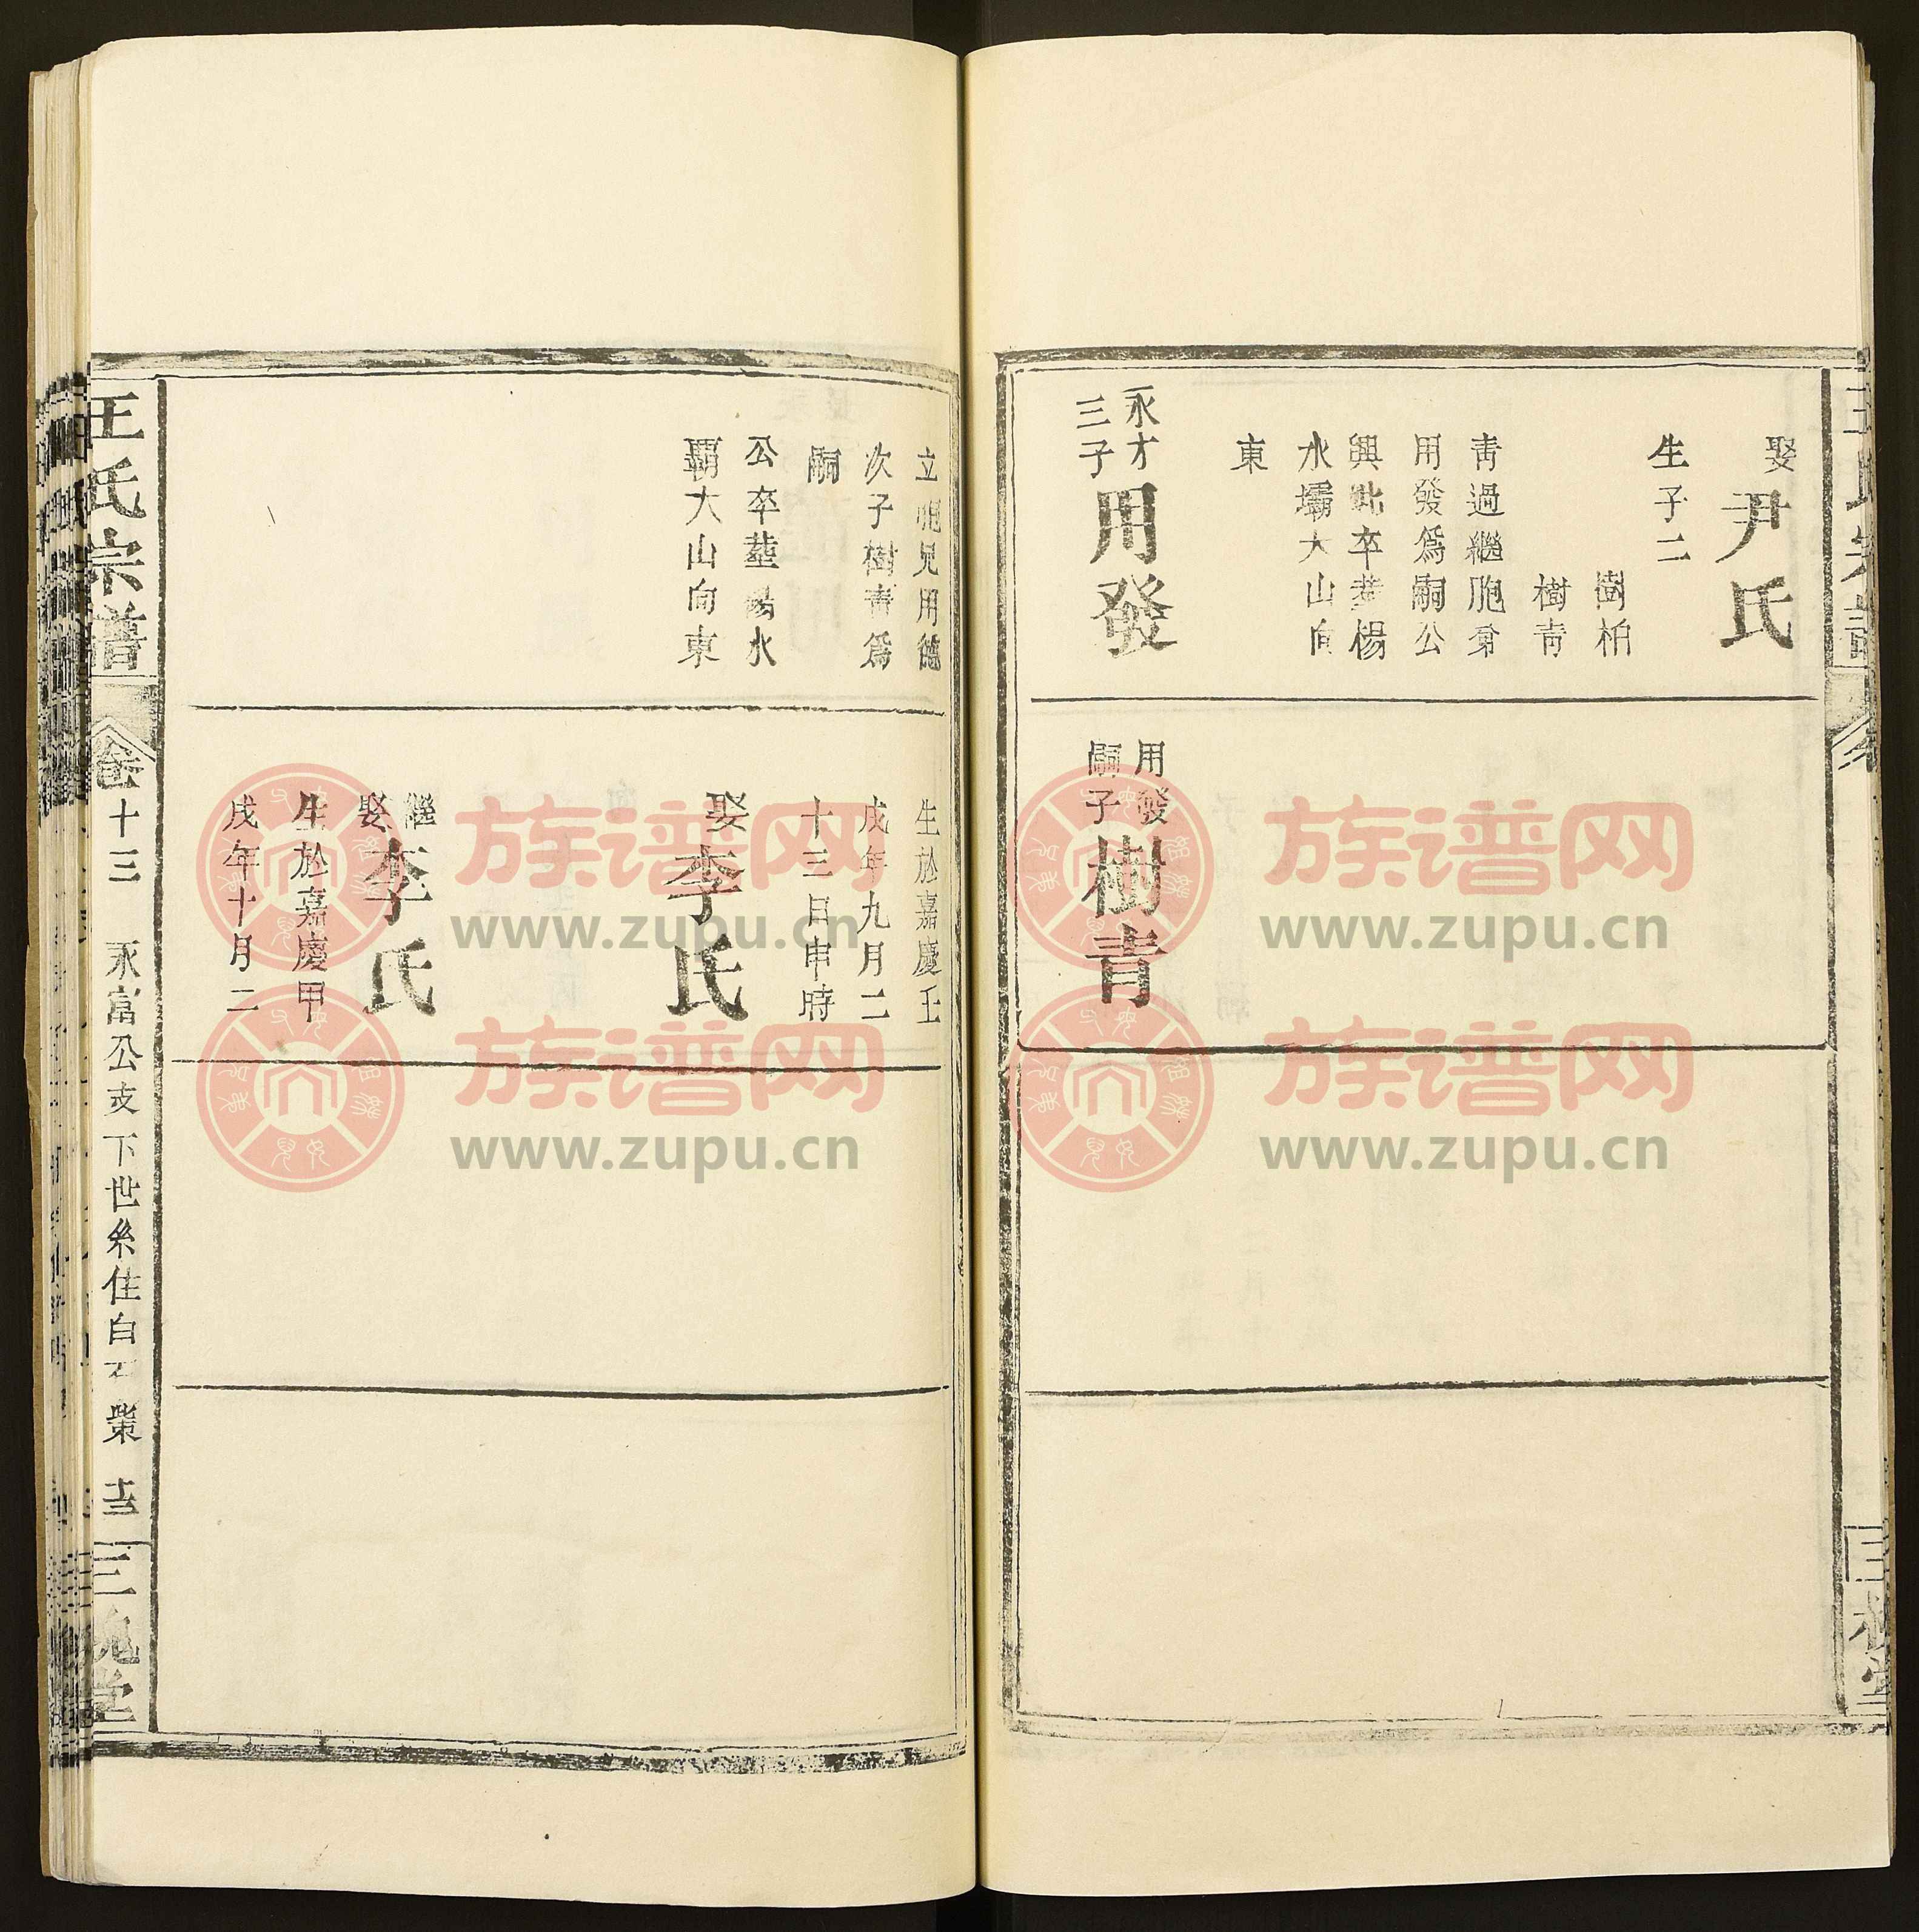 娶尹氏
生子二
樹柏
樹青
青過繼胞弟
用發爲嗣公
興妣卒葬楊
水壩大山向
東
永才
三子
用發
用發
嗣子
樹青
立胞兄用德
次子樹青爲
嗣
公卒塟楊水
覇大山向東
生於嘉慶壬
戌年九月二
十三日申時
娶李氏
繼
娶
李氏
生於嘉慶甲
戌年十月二
王氏宗譜
卷十三
永富公支下世系住白石柴
十三
三槐堂
族谱网
www.zupu.cn
族谱网
www.zupu.cn
族谱网
www.zupu.cn
族谱网
www.zupu.cn